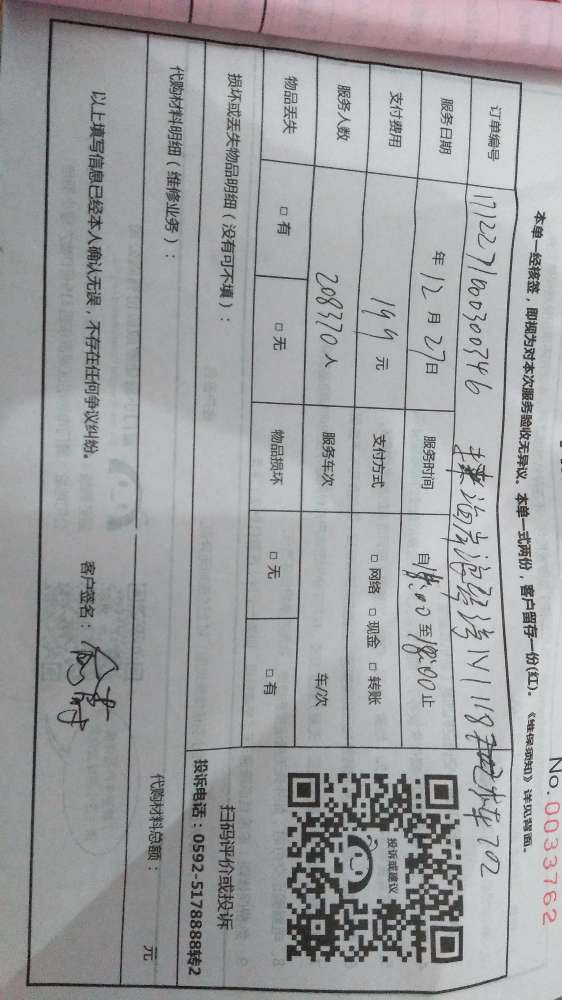 No. 0033762
本单一经核签，即视为对本次服务验收无异议。本单一式两份，客户留存一份(红)。《维保须知》详见背面。
订单编号 171227100300346
服务日期 年 12 月 27 日 服务时间 自 18:00 至 18:00 止
支付费用 199 元 支付方式 □ 网络 □ 现金 □ 转账
服务人数 208370 人 服务车次 车/次
物品丢失 □ 有 □ 无 物品损坏 □ 无 □ 有
损坏或丢失物品明细（没有可不填）：
代购材料明细（维修业务）：
代购材料总额： 元
以上填写信息已经本人确认无误，不存在任何争议纠纷。
客户签名：
投诉或建议
扫码评价或投诉
投诉电话：0592-5178888转2